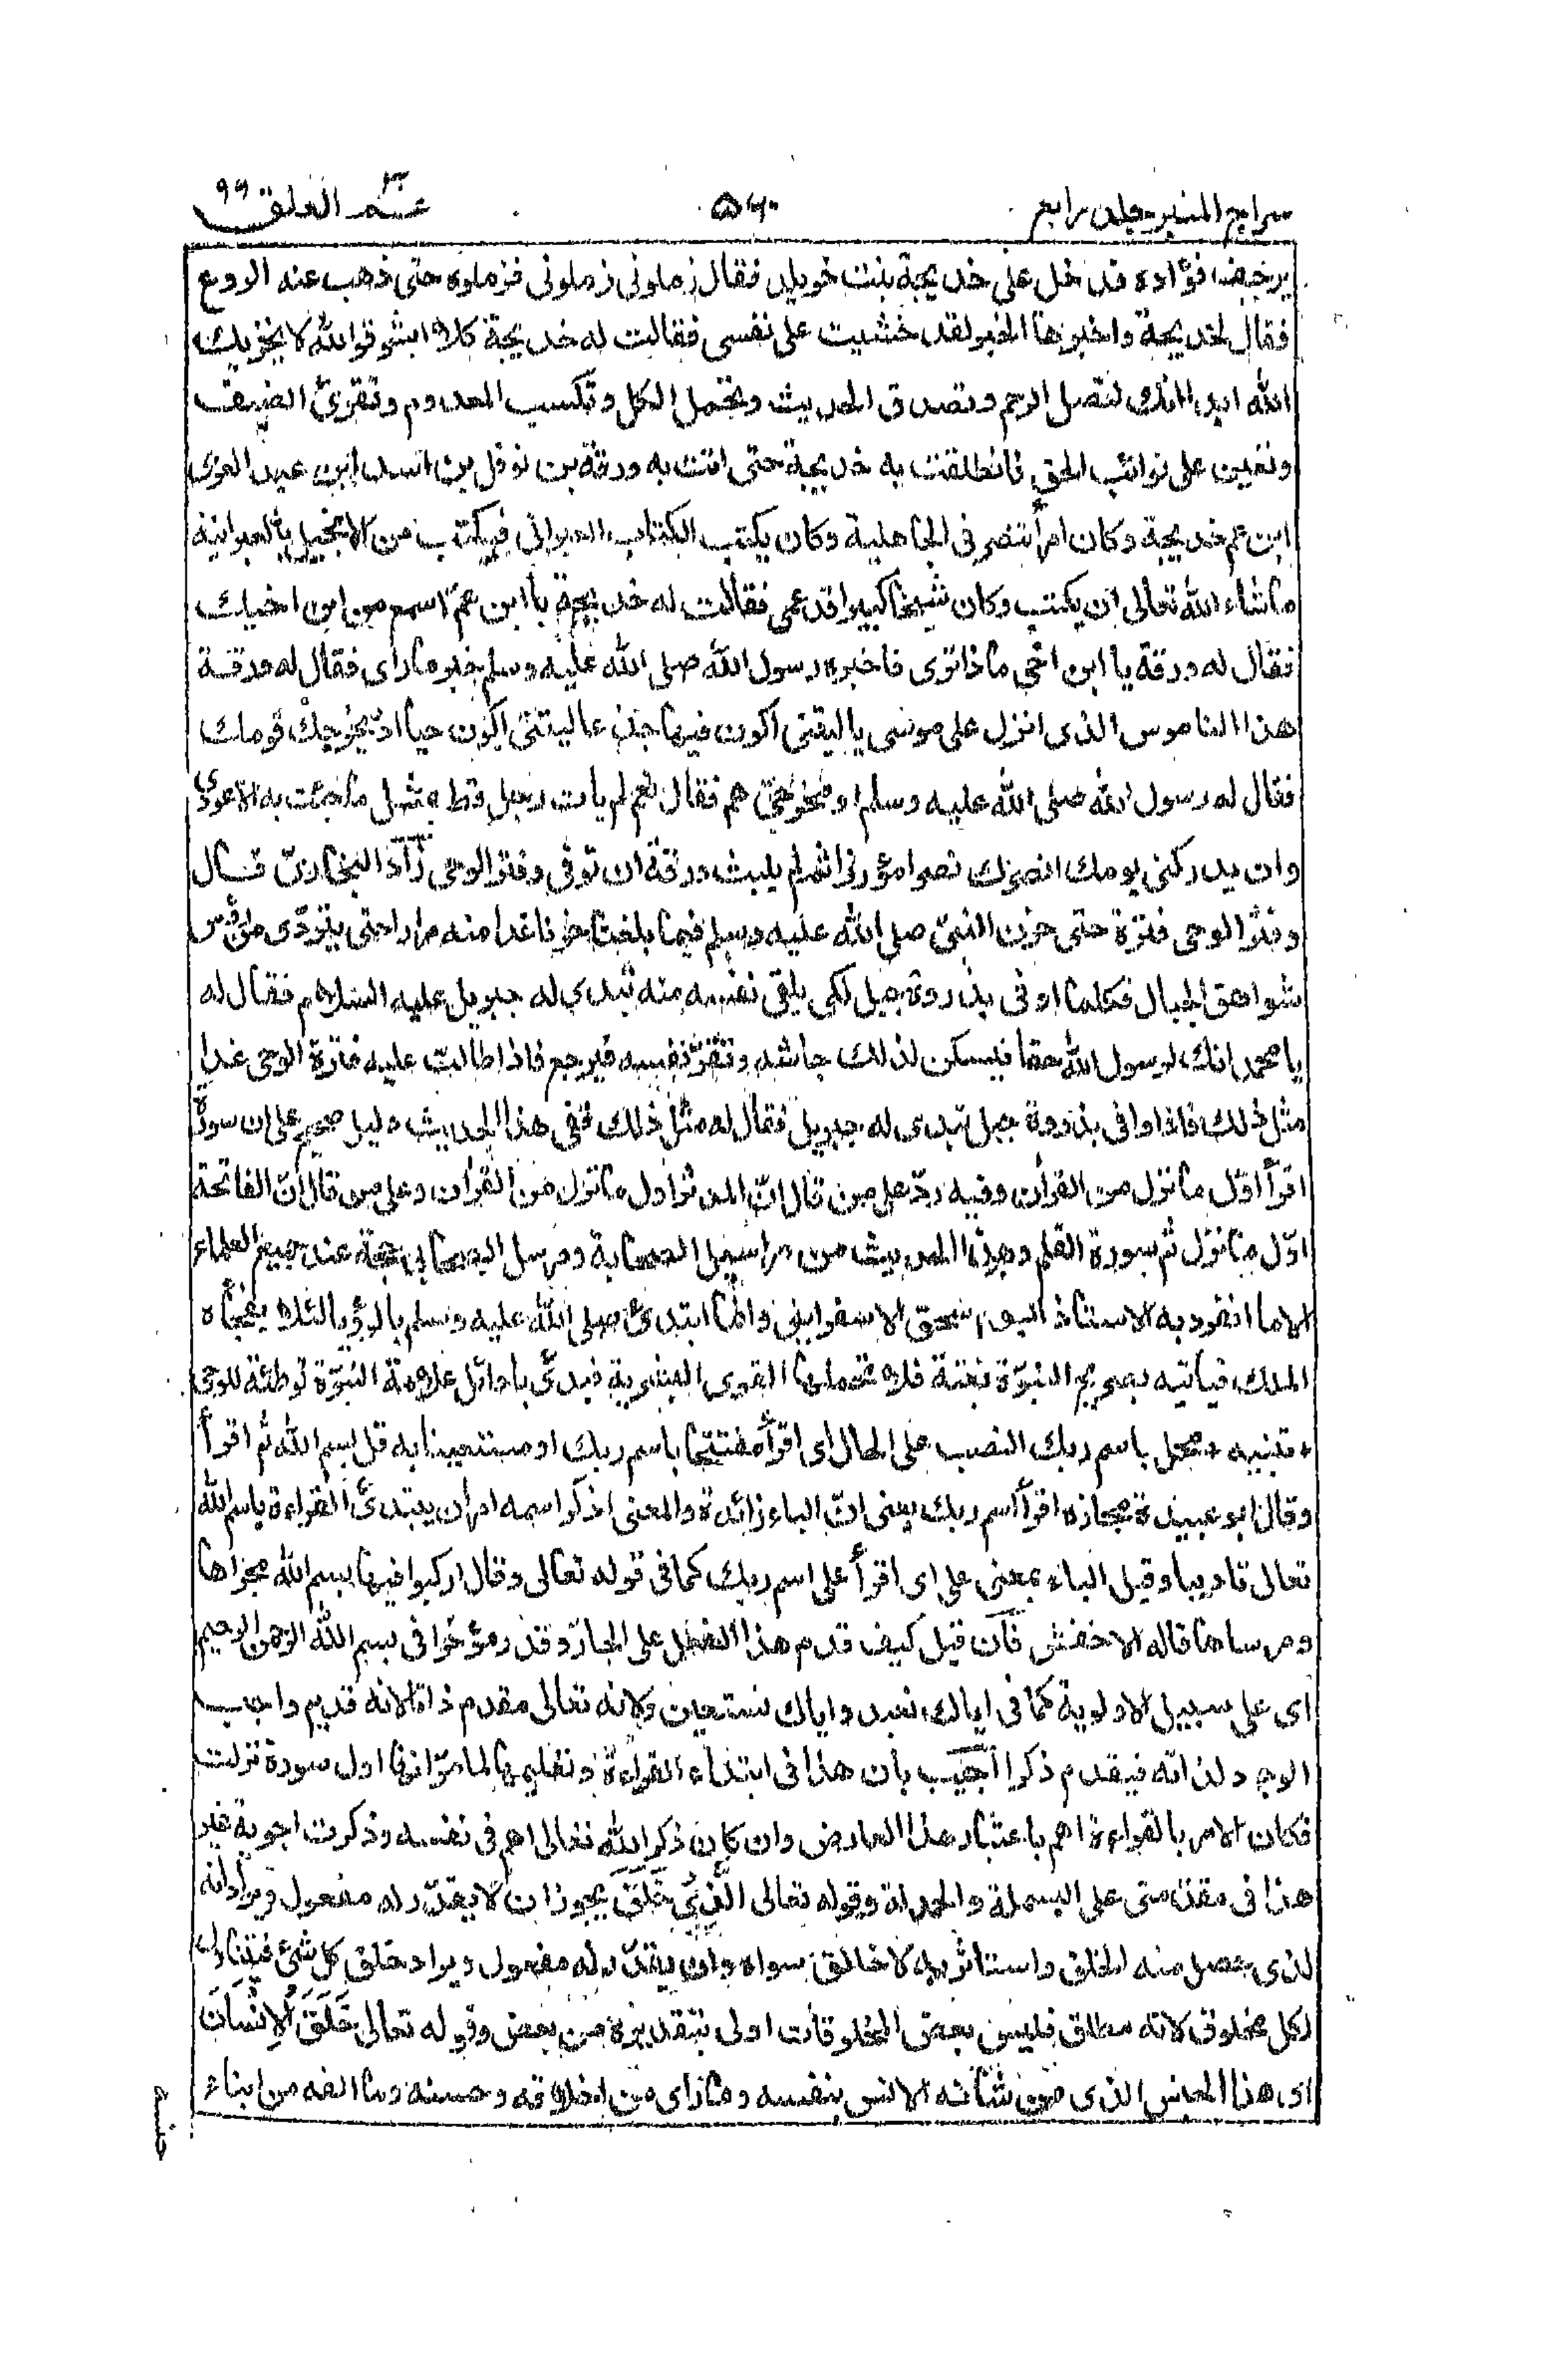 سراج المنير جلد رابع ۵۶۰ عــم العلق ۹۶
يرجف فؤاده فدخل على خديجة بنت خويلد فقال زملونى زملونى فزملوه حتى ذهب عنه الروع
فقال لخديجة واخبرها الخبر لقد خشيت على نفسى فقالت له خديجة كلا ابشر فوالله لا يخزيك
الله ابدا انك لتصل الرحم وتصدق الحديث وتحمل الكل وتكسب المعدوم وتقرئ الضيف
وتعين على نوائب الحق فانطلقت به خديجة حتى اتت به ورقة بن نوفل بن اسد ابن عبد العزى
ابن عم خديجة وكان امرأ تنصر فى الجاهلية وكان يكتب الكتاب العبرانى فيكتب من الانجيل بالعبرانية
ماشاء الله تعالى ان يكتب وكان شيخا كبيرا قد عمى فقالت له خديجة يا ابن عم اسمع من ابن اخيك
فقال له ورقة يا ابن اخى ماذا ترى فاخبره رسول الله صلى الله عليه وسلم خبر ما رأى فقال له ورقة
هذا الناموس الذى انزل على موسى ياليتنى اكون فيها جذعا ليتنى اكون حيا اذ يخرجك قومك
فقال له رسول الله صلى الله عليه وسلم او مخرجىّ هم فقال نعم لم يات رجل قط بمثل ما جئت به الا عودى
وان يدركنى يومك انصرك نصرا مؤزرا ثم لم يلبث ورقة ان توفى وفتر الوحى زاد البخارىّ قال
وفتر الوحى فترة حتى حزن النبىّ صلى الله عليه وسلم فيما بلغنا حزنا غدا منه مرارا حتى يتردّى من رؤس
شواهق الجبال فكلما اوفى بذروة جبل لكى يلقى نفسه منه تبدى له جبريل عليه السلام فقال له
يا محمد انك لرسول الله حقا فيسكن لذلك جاشه وتقرّ نفسه فيرجع فاذا طالت عليه فترة الوحى غدا
مثل ذلك فاذا اوفى بذروة جبل تبدى له جبريل فقال له مثل ذلك ففى هذا الحديث دليل صحيح على ان سورة
اقرأ اوّل ما نزل من القرأن وفيه ردّ على من قال انّ المدثر اول ما نزل من القرأن وعلى من قال انّ الفاتحة
اوّل ما نزل ثم سورة القلم وهذا الحديث من مراسيل الصحابة ومرسل الصحابى حجة عند جميع العلماء
الا ما انفرد به الاستاذ ابو اسحق الاسفراينى وانما ابتدئ صلى الله عليه وسلم بالرؤيا لئلا يفجأه
الملك فيأتيه بصريح النبوّة بغتة فلا تحملها القوى البشرية فبدئ باوائل علامة النبوّة توطئة للوحى
۰ تنبيه ۰ محل باسم ربك النصب على الحال اى اقرأ مفتتحا باسم ربك او مستعينا به قل بسم الله ثم اقرأ
وقال ابو عبيدة مجازه اقرأ اسم ربك يعنى انّ الباء زائدة والمعنى اذكر اسمه امر ان يبتدئ القراءة باسم الله
تعالى تاديبا وقيل الباء بمعنى على اى اقرأ على اسم ربك كما فى قوله تعالى وقال اركبوا فيها بسم الله مجراها
ومرساها قاله الاخفش فان قيل كيف قدم هذا الفعل على الجارّ وقدر مؤخرا فى بسم الله الرحمن الرحيم
اى على سبيل الاولوية كما فى اياك نعبد واياك نستعين ولانه تعالى مقدم ذاتا لانه قديم واجب
الوجود لذاته فيقدم ذكرا اجيب بان هذا فى ابتداء القراءة وتعليمها لما مرّ انها اول سورة نزلت
فكان الامر بالقراءة اهم باعتبار هذا العارض وان كان ذكر الله تعالى اهم فى نفسه وذكرت اجوبة غير
هذا فى مقدمتى على البسملة والحمدلة وقوله تعالى الَّذِى خَلَقَ يجوز ان لا يقدّر له مفعول ويراد انه
لذى حصل منه الخلق واستاثر به لا خالق سواه وان يقدّر له مفعول ويراد خلق كل شئ فيتناول
لكل مخلوق لانه مطلق فليس بعض المخلوقات اولى بتقديره من بعض وقوله تعالى خَلَقَ الْاِنْسَانَ
اى هذا الجنس الذى من شأنه الانس بنفسه وما رأى من اخلاقه وحسنه وما الفه من ابناء